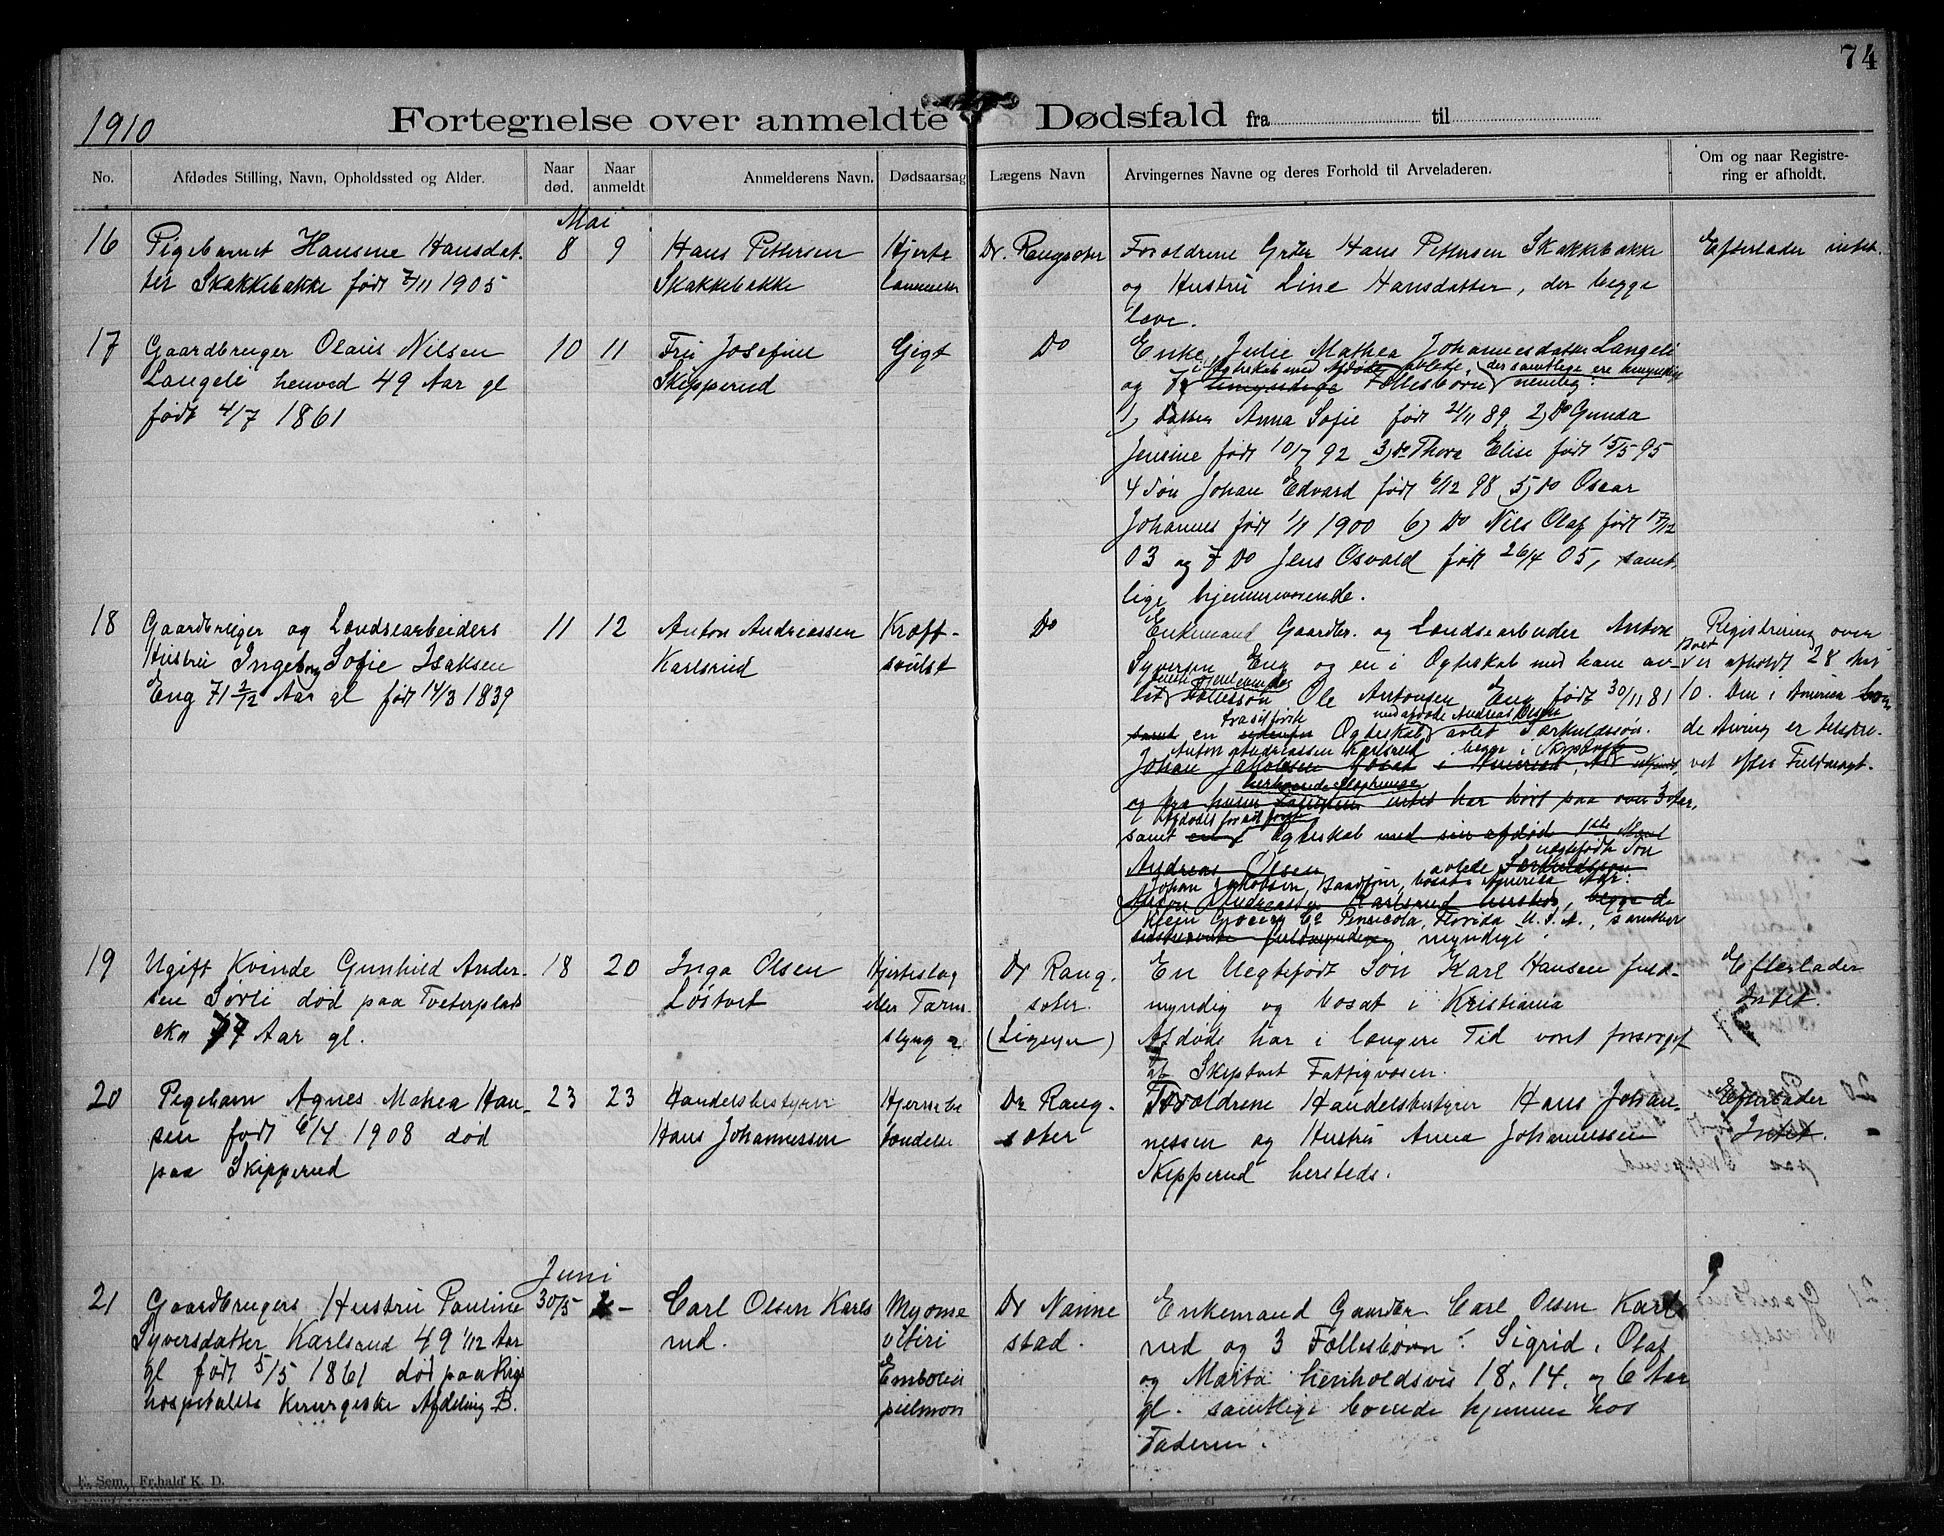 74
1910
Fortegnelse over anmeldte Dødsfald fra til
No.
Afdødes Stilling, Navn, Opholdssted og Alder.
Naar død.
Naar anmeldt
Anmelderens Navn.
Dødsaarsag
Lægens Navn
Arvingernes Navne og deres Forhold til Arveladeren.
Om og naar Registre-
ring er afholdt.
Mai
16
Pigebarnet Hansine Hansdat-
ter Skakkebakke født 7/11 1905
8
9
Hans Pettersen
Skakkebakke
Hjerte
Dr. Rangsæter
Forældrene Grdbr Hans Pettersen Skakkebakke
og Hustru Line Hansdatter, der begge
leve.
Efterlader intet.
17
Gaardbruger Olaus Nilsen
Langeli henved 49 Aar gl
født 4/7 1861
10
11
Fru Josefine
Skipperud
Gigt
Do
Enke Julie Mathea Johannesdatter Langeli
i Ægteskab med Afdøde avlede, der samtlige ere umyndige
og 7 umyndige Fællesbørn nemlig:
1) Datter Anna Sofie født 21/11 89 2) Do Gunda
Jensine født 10/7 92 3) Do Thora Elise født 15/5 95
4 Søn Johan Edvard født 6/12 98 5) Do Oscar
Johannes født 1/11 1900 6) Do Nils Olaf født 17/12
03 og 7 Do Jens Osvald født 26/4 05, samt-
lige hjemmeværende.
18
Gaardbruger og Lændsearbeiders
Hustru Ingeborg Sofie Isaksen
Eng 71 2/12 Aar gl født 14/3 1839
11
12
Anton Andreassen
Karlsrud
Kræft-
svulst
Do
Enkemand Gaardbr. og Lændsearbeider Anton
Syversen Eng og en i Ægteskab med ham av-
let Fællessøn Ole Antonsen Eng født 30/11 81
fra sit første med afdøde Andreas Olsen
samt en Ægteskab avlet Særkuldssøn.
Anton Andreassen Karlsrud begge i Skiptvet
Johan Jakobsen bosat i Amerika,
og fra hvem intet har hørt paa over 3 Aar,
Afdødes før sit første
samt en Ægteskab med sin afdøde 1ste Mand
uægtefødte Søn
Andreas Olsen avlede Særkuldssøn
Johan Jakobsen, Baadfører, bosat i Amerika Adr:
Anton Andreassen Karlsrud hersteds, begge de
Klein Grocery Co Pensacola, Florida U. S. A., samtlige
myndige.
Registrering over
Boet
er afholdt 28 Mai
10. Den i Amerika boen-
de Arving er tilskre-
vet efter Fuldmagt.
19
Ugift Kvinde Gunhild Ander-
sen Sørli død paa Tveterplads
cka 77 Aar gl.
18
20
Inga Olsen
Løstvet
Hjerteslag
eller Tarm-
slyng
Dr Rang-
sæter.
(Ligsyn)
En Uegtefødt Søn Karl Hansen fuld-
myndig og bosat i Kristiania
Afdøde har i længere Tid været forsørget
af Skiptvet Fattigvæsen.
Efterlader
Intet.
20
Pigebarn Agnes Mathea Han-
sen født 6/4 1908 død
paa Skipperud
23
23
Handelsbestyrer
Hans Johannessen
Hjernebe
tændelse
Dr Rang-
sæter
Forældrene Handelsbestyrer Hans Johan-
nessen og Hustru Anna Johannessen
Skipperud hersteds.
Efterlader
Intet.
Juni
21
Gaardbrugers Hustru Pauline
Syversdatter Karlsrud 49 1/12 Aar
gl født 5/5 1861 død paa Rigs
hospitalets Kirurgiske Afdeling B.
30/5
Carl Olsen Karls
rud.
Myoma
uteri
Embolia
pulmon
Dr Nanne
stad.
Enkemand Gaardbr Carl Olsen Karls
rud og 3 Fællesbørn: Sigrid, Olaf
og Marta henholdsvis 18, 14, og 6 Aar
gl. samtlige boende hjemme hos
Faderen.
E. Sem, Fr.hald K. D.